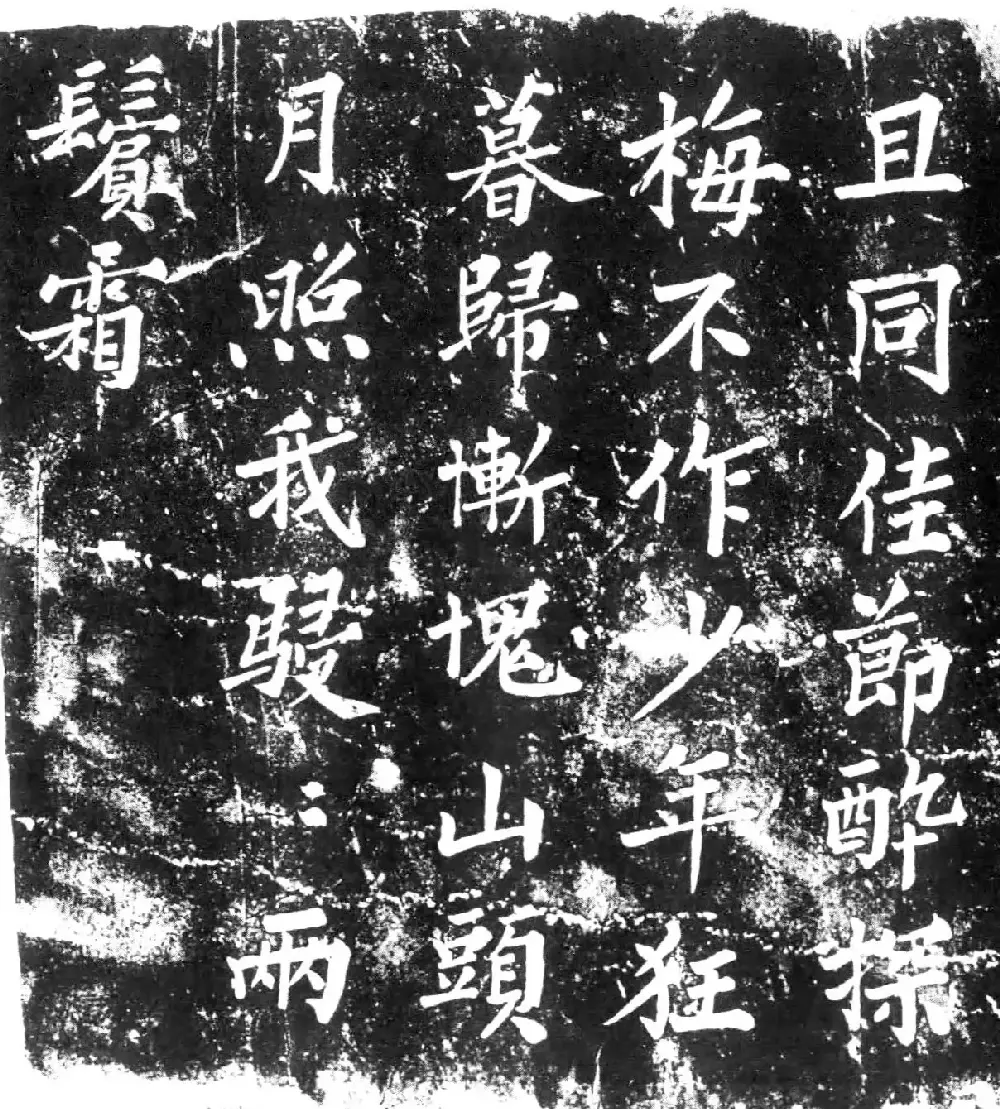 且同佳節醉探
梅不作少年狂
暮歸慚愧山頭
月照我駸〻兩
鬢霜